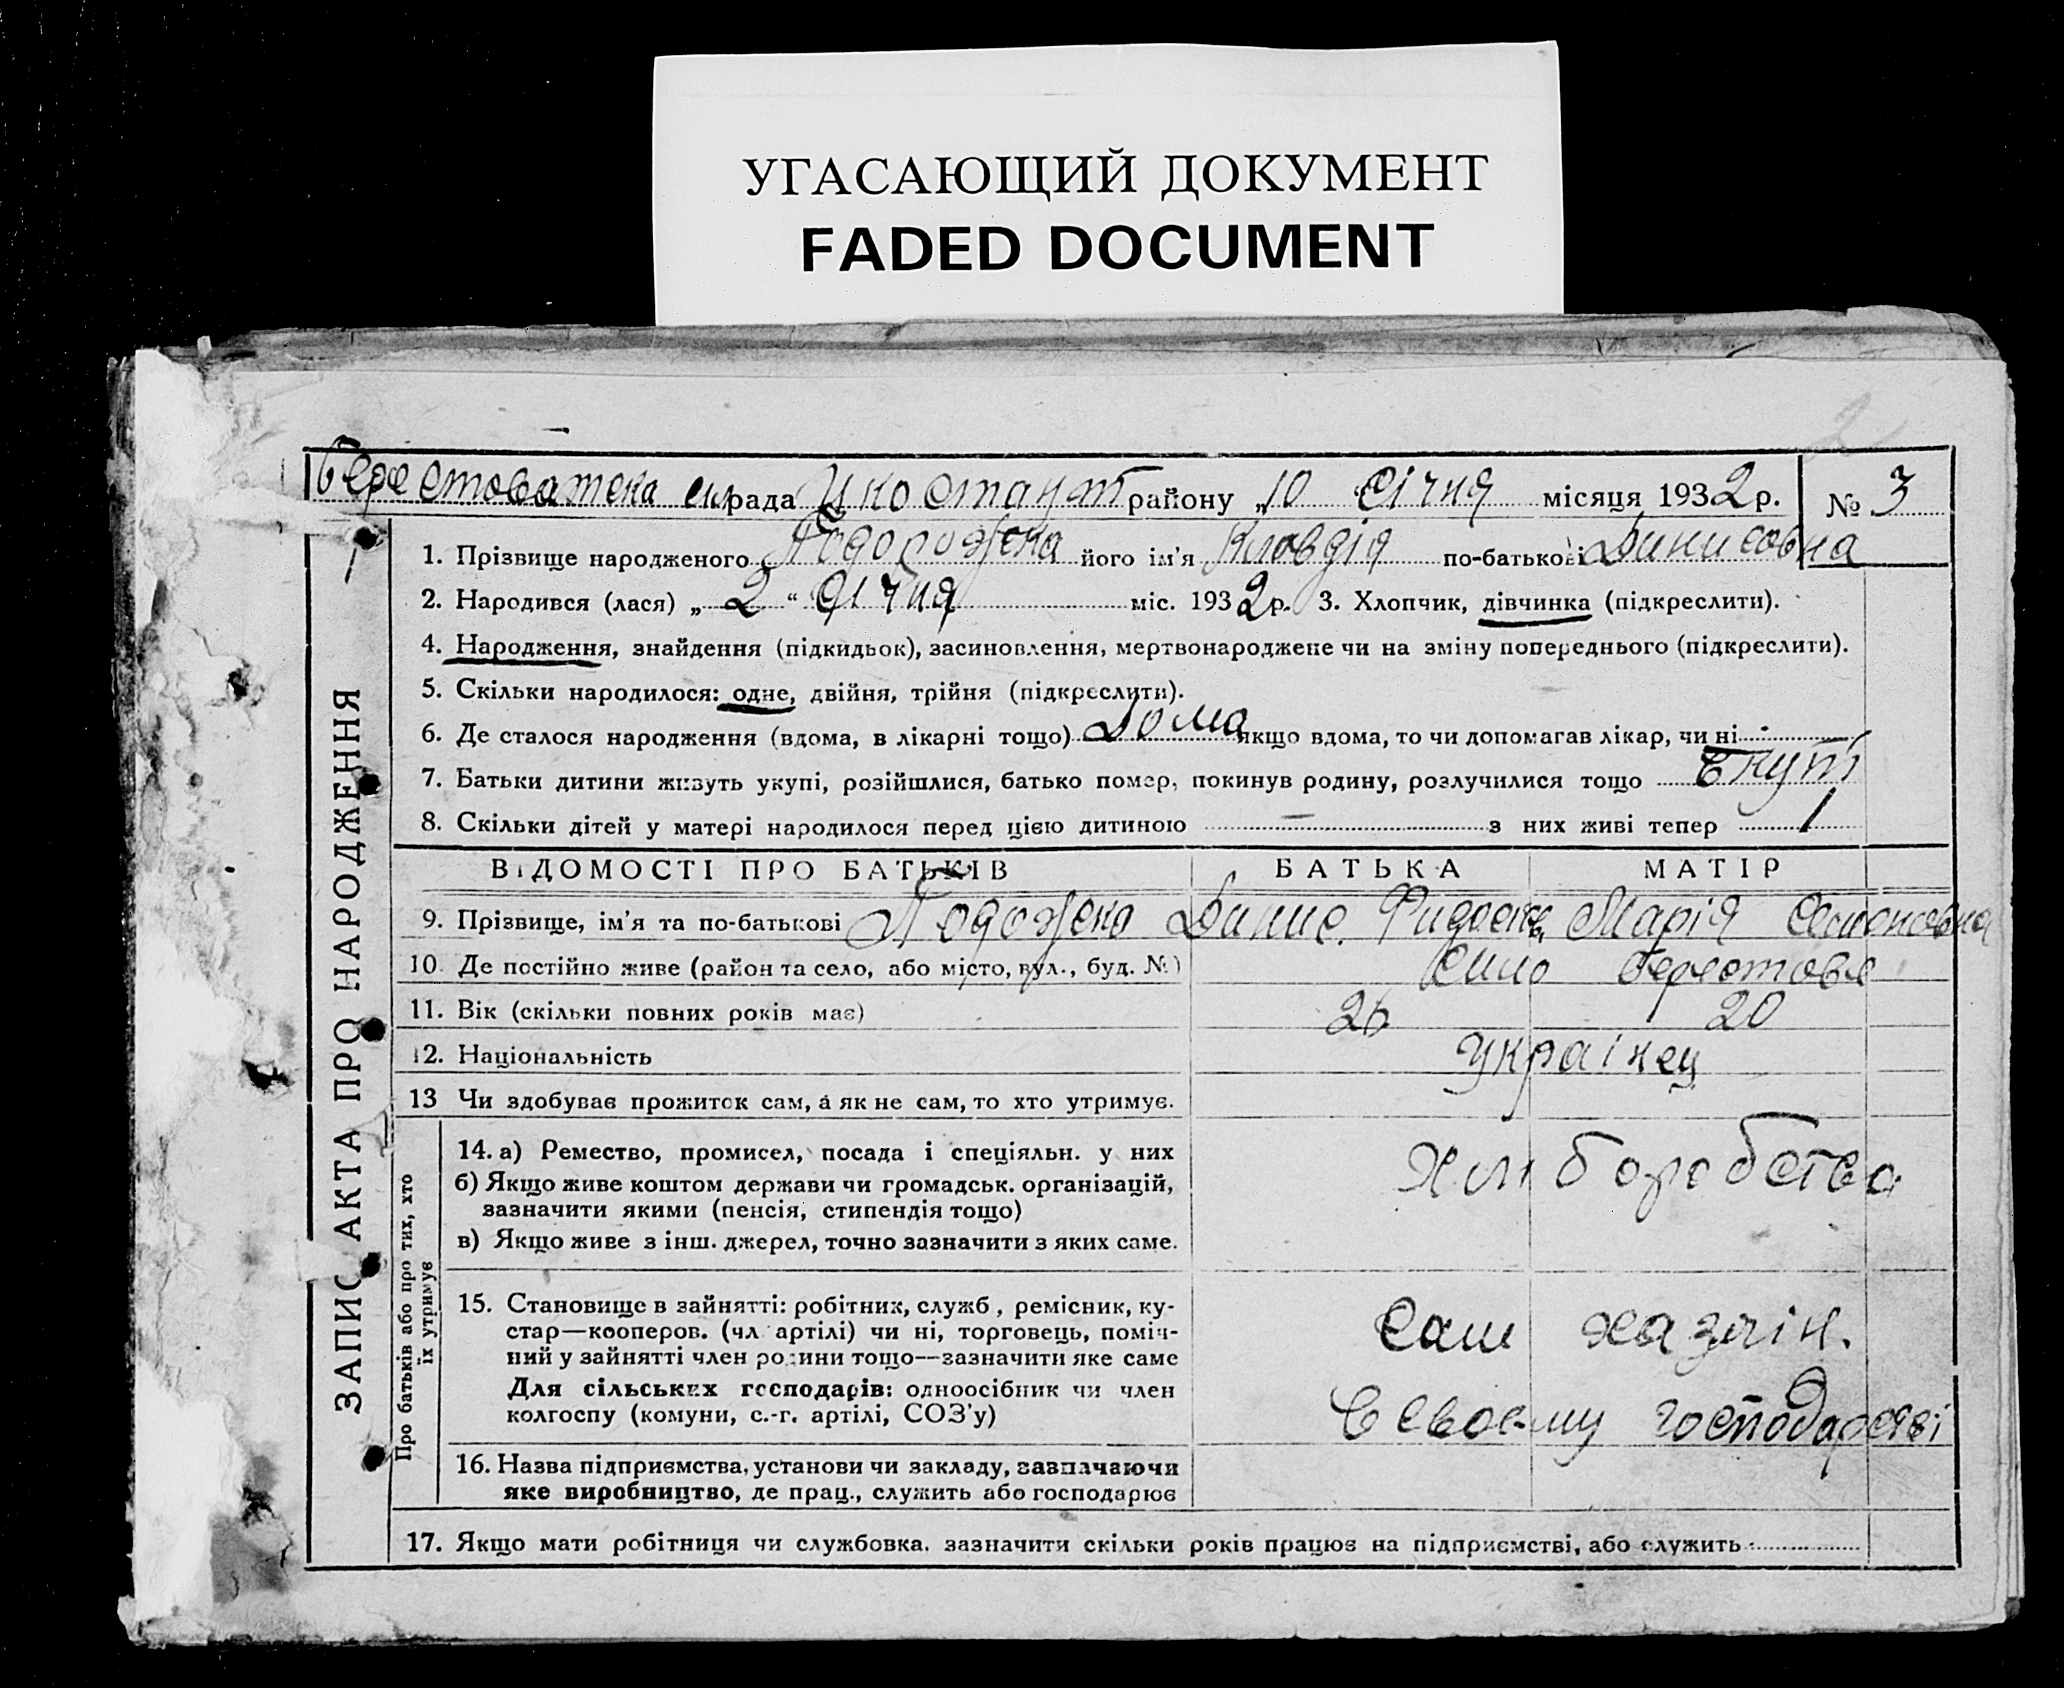 УГАСАЮЩИЙ ДОКУМЕНТ
FADED DOCUMENT
Берестоватска сил рада району „10 Січня місяця 1932 р. № 3
1. Прізвище народженого Подорожена його ім'я Кловдія по-батькові Динисовна
2. Народився (лася) „2“ Січня міс. 1932 р. 3. Хлопчик, дівчинка (підкреслити).
4. Народження, знайдення (підкидьок), засиновлення, мертвонароджене чи на зміну попереднього (підкреслити).
5. Скільки народилося: одне, двійня, трійня (підкреслити).
6. Де сталося народження (вдома, в лікарні тощо) Дома якщо вдома, то чи допомагав лікар, чи ні
7. Батьки дитини живуть укупі, розійшлися, батько помер, покинув родину, розлучилися тощо вкупі
8. Скільки дітей у матері народилося перед цією дитиною — з них живі тепер 1
ВІДОМОСТІ ПРО БАТЬКІВ БАТЬКА МАТІР
9. Прізвище, ім'я та по-батькові Динис Марія Семоновна
10. Де постійно живе (район та село, або місто, вул., буд. №) Сило Берестове
11. Вік (скільки повних років має) 26 20
12. Національність українец
13 Чи здобуває прожиток сам, а як не сам, то хто утримує.
14. а) Ремество, промисел, посада і спеціяльн. у них
б) Якщо живе коштом держави чи громадськ. організацій,
зазначити якими (пенсія, стипендія тощо)
в) Якщо живе з інш. джерел, точно зазначити з яких саме.
Хліборобство
15. Становище в зайнятті: робітник, служб, ремісник, ку-
стар—кооперов. (чл артілі) чи ні, торговець, поміч-
ний у зайнятті член родини тощо—зазначити яке саме
Для сільських господарів: одноосібник чи член
колгоспу (комуни, с.-г. артілі, СОЗ'у)
Сам хазяін.
в своєму господарстві
16. Назва підприємства, установи чи закладу, зазначаючи
яке виробництво, де прац., служить або господарює
17. Якщо мати робітниця чи службовка, зазначити скільки років працює на підприємстві, або служить
ЗАПИС АКТА ПРО НАРОДЖЕННЯ
Про батьків або про тих, хто
їх утримує